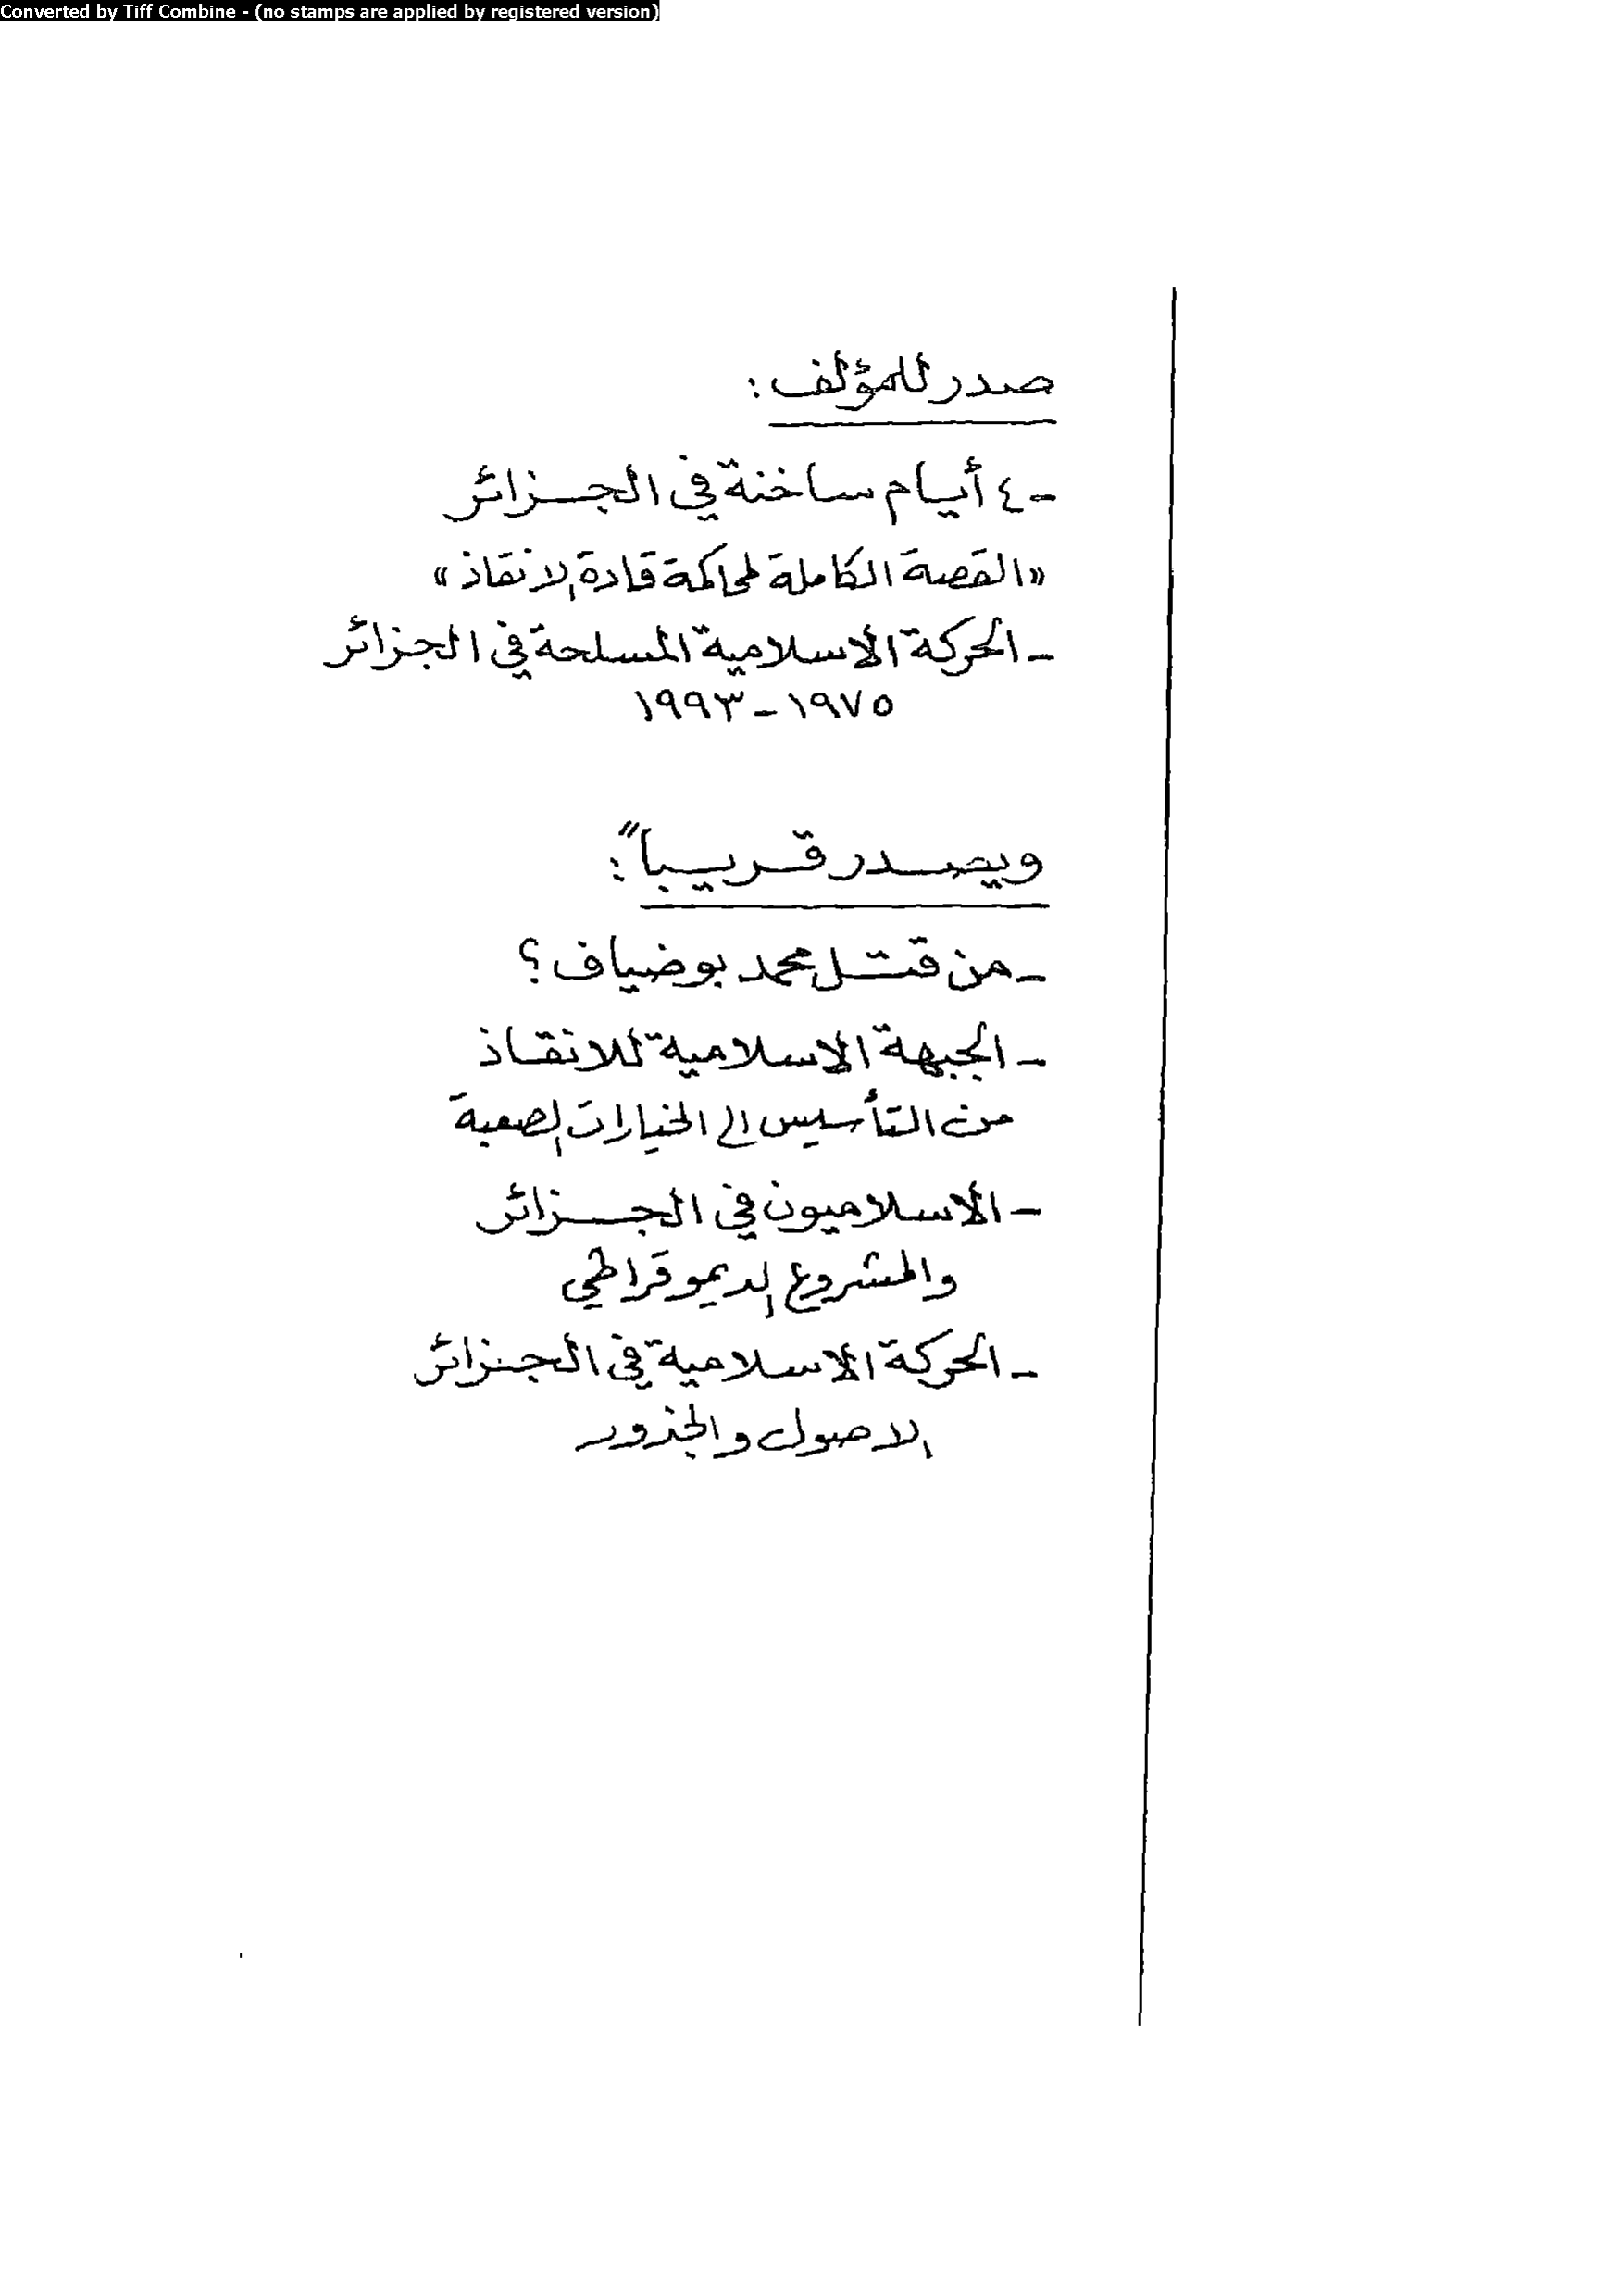 Converted by Tiff Combine - (no stamps are applied by registered version)
صدر للمؤلف :
- ٤ أيام ساخنة في الجزائر
«القصة الكاملة لمحاكمة قادة الانقاذ»
- الحركة الاسلامية المسلحة في الجزائر
١٩٧٥ - ١٩٩٣
ويصدر قريباً :
- من قتل محمد بوضياف ؟
- الجبهة الاسلامية للانقاذ
من التأسيس الى الخيارات الصعبة
- الاسلاميون في الجزائر
والمشروع الديموقراطي
- الحركة الاسلامية في الجزائر
الاصول والجذور